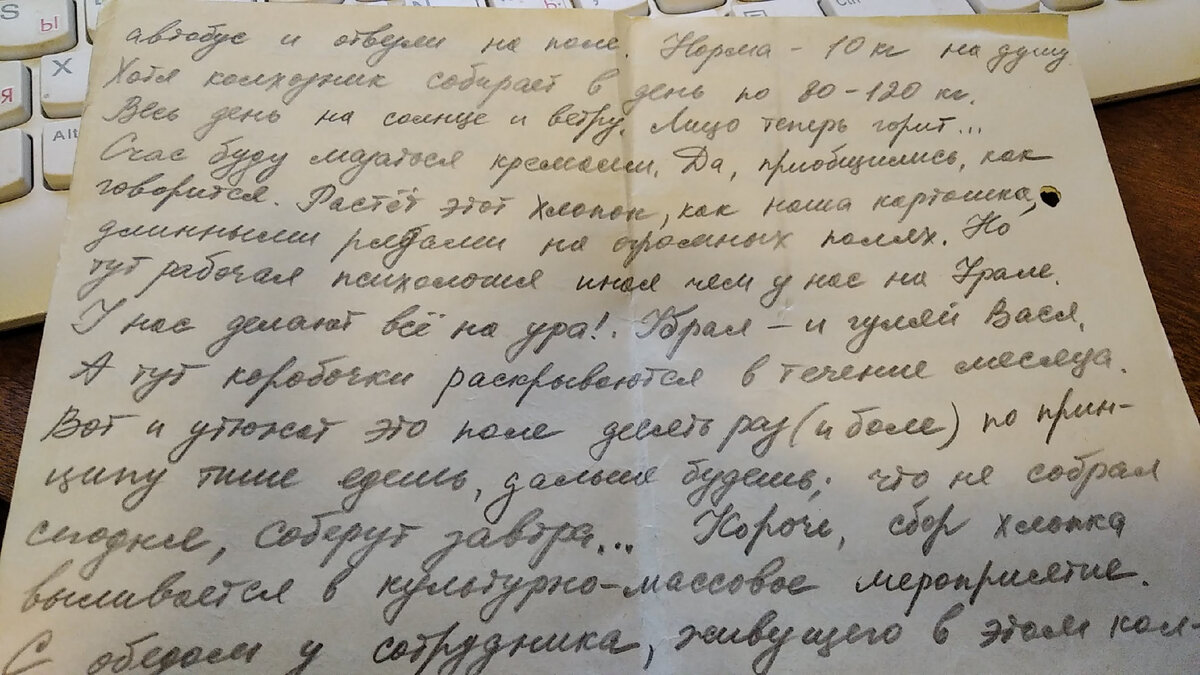 автобус и отвезли на поле. Норма - 10 кг на душу.
Хотя колхозник собирает в день по 80-120 кг.
Весь день на солнце и ветру. Лицо теперь горит...
Счас буду мазаться кремами. Да, приобщились, как
говорится. Растёт этот хлопок, как наша картошка,
длинными рядами на огромных полях. Но
тут рабочая психология иная чем у нас на Урале.
У нас делают всё на ура!. Убрал - и гуляй Вася.
А тут коробочки раскрываются в течение месяца.
Вот и утюжат это поле десять раз (и боле) по прин-
ципу тише едешь, дальше будешь; что не собрал
сегодня, соберут завтра... Короче, сбор хлопка
выливается в культурно-массовое мероприятие.
С обедом у сотрудника, живущего в этом кол-
S
Ы
Я
X
Alt
Ctrl